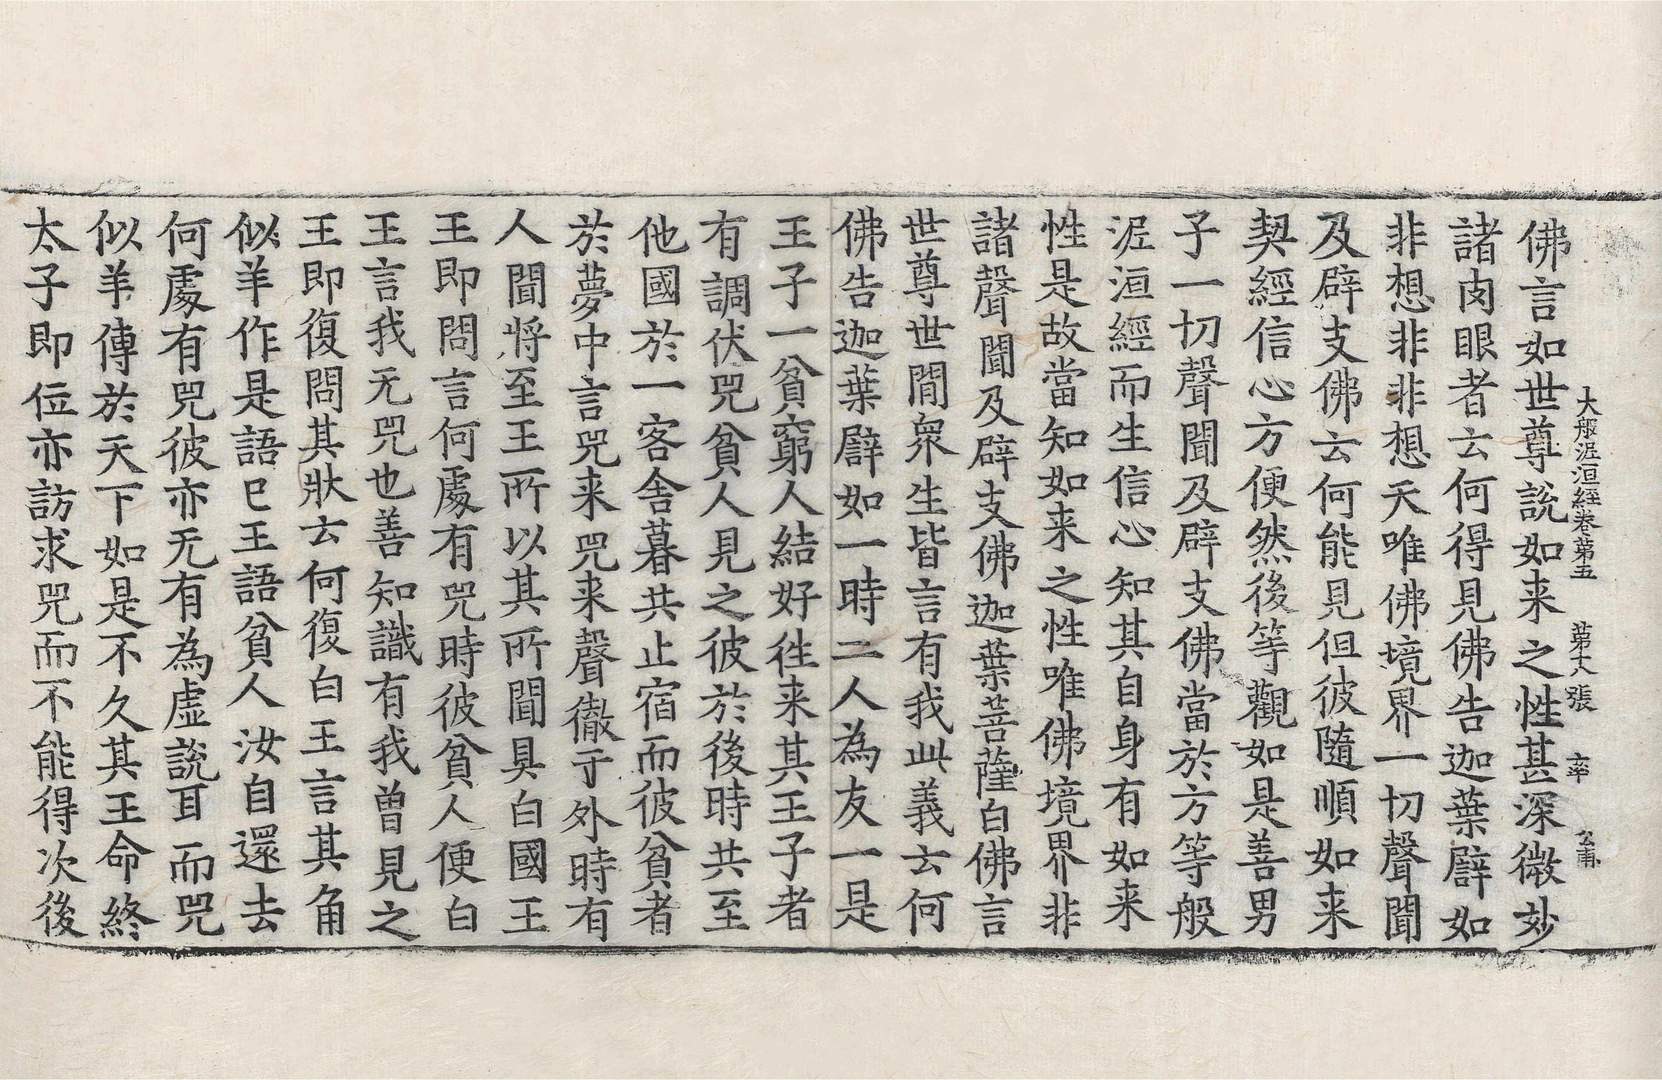 大般泥洹經卷第五 第十六張 率 公甫
佛言如世尊說如来之性甚深微妙
諸肉眼者云何得見佛告迦葉譬如
非想非非想天唯佛境界一切聲聞
及辟支佛云何能見但彼隨順如来
契經信心方便然後等觀如是善男
子一切聲聞及辟支佛當於方等般
泥洹經而生信心知其自身有如来
性是故當知如来之性唯佛境界非
諸聲聞及辟支佛迦葉菩薩白佛言
世尊世間衆生皆言有我此義云何
佛告迦葉譬如一時二人為友一是
王子一貧窮人結好往来其王子者
有調伏咒貧人見之彼於後時共至
他國於一客舍暮共止宿而彼貧者
於夢中言咒来咒来聲徹于外時有
人聞將至王所以其所聞具白國王
王即問言何處有咒時彼貧人便白
王言我无咒也善知識有我曾見之
王即復問其狀云何復白王言其角
似羊作是語已王語貧人汝自還去
何處有咒彼亦无有為虛說耳而咒
似羊傳於天下如是不久其王命終
太子即位亦訪求咒而不能得次後